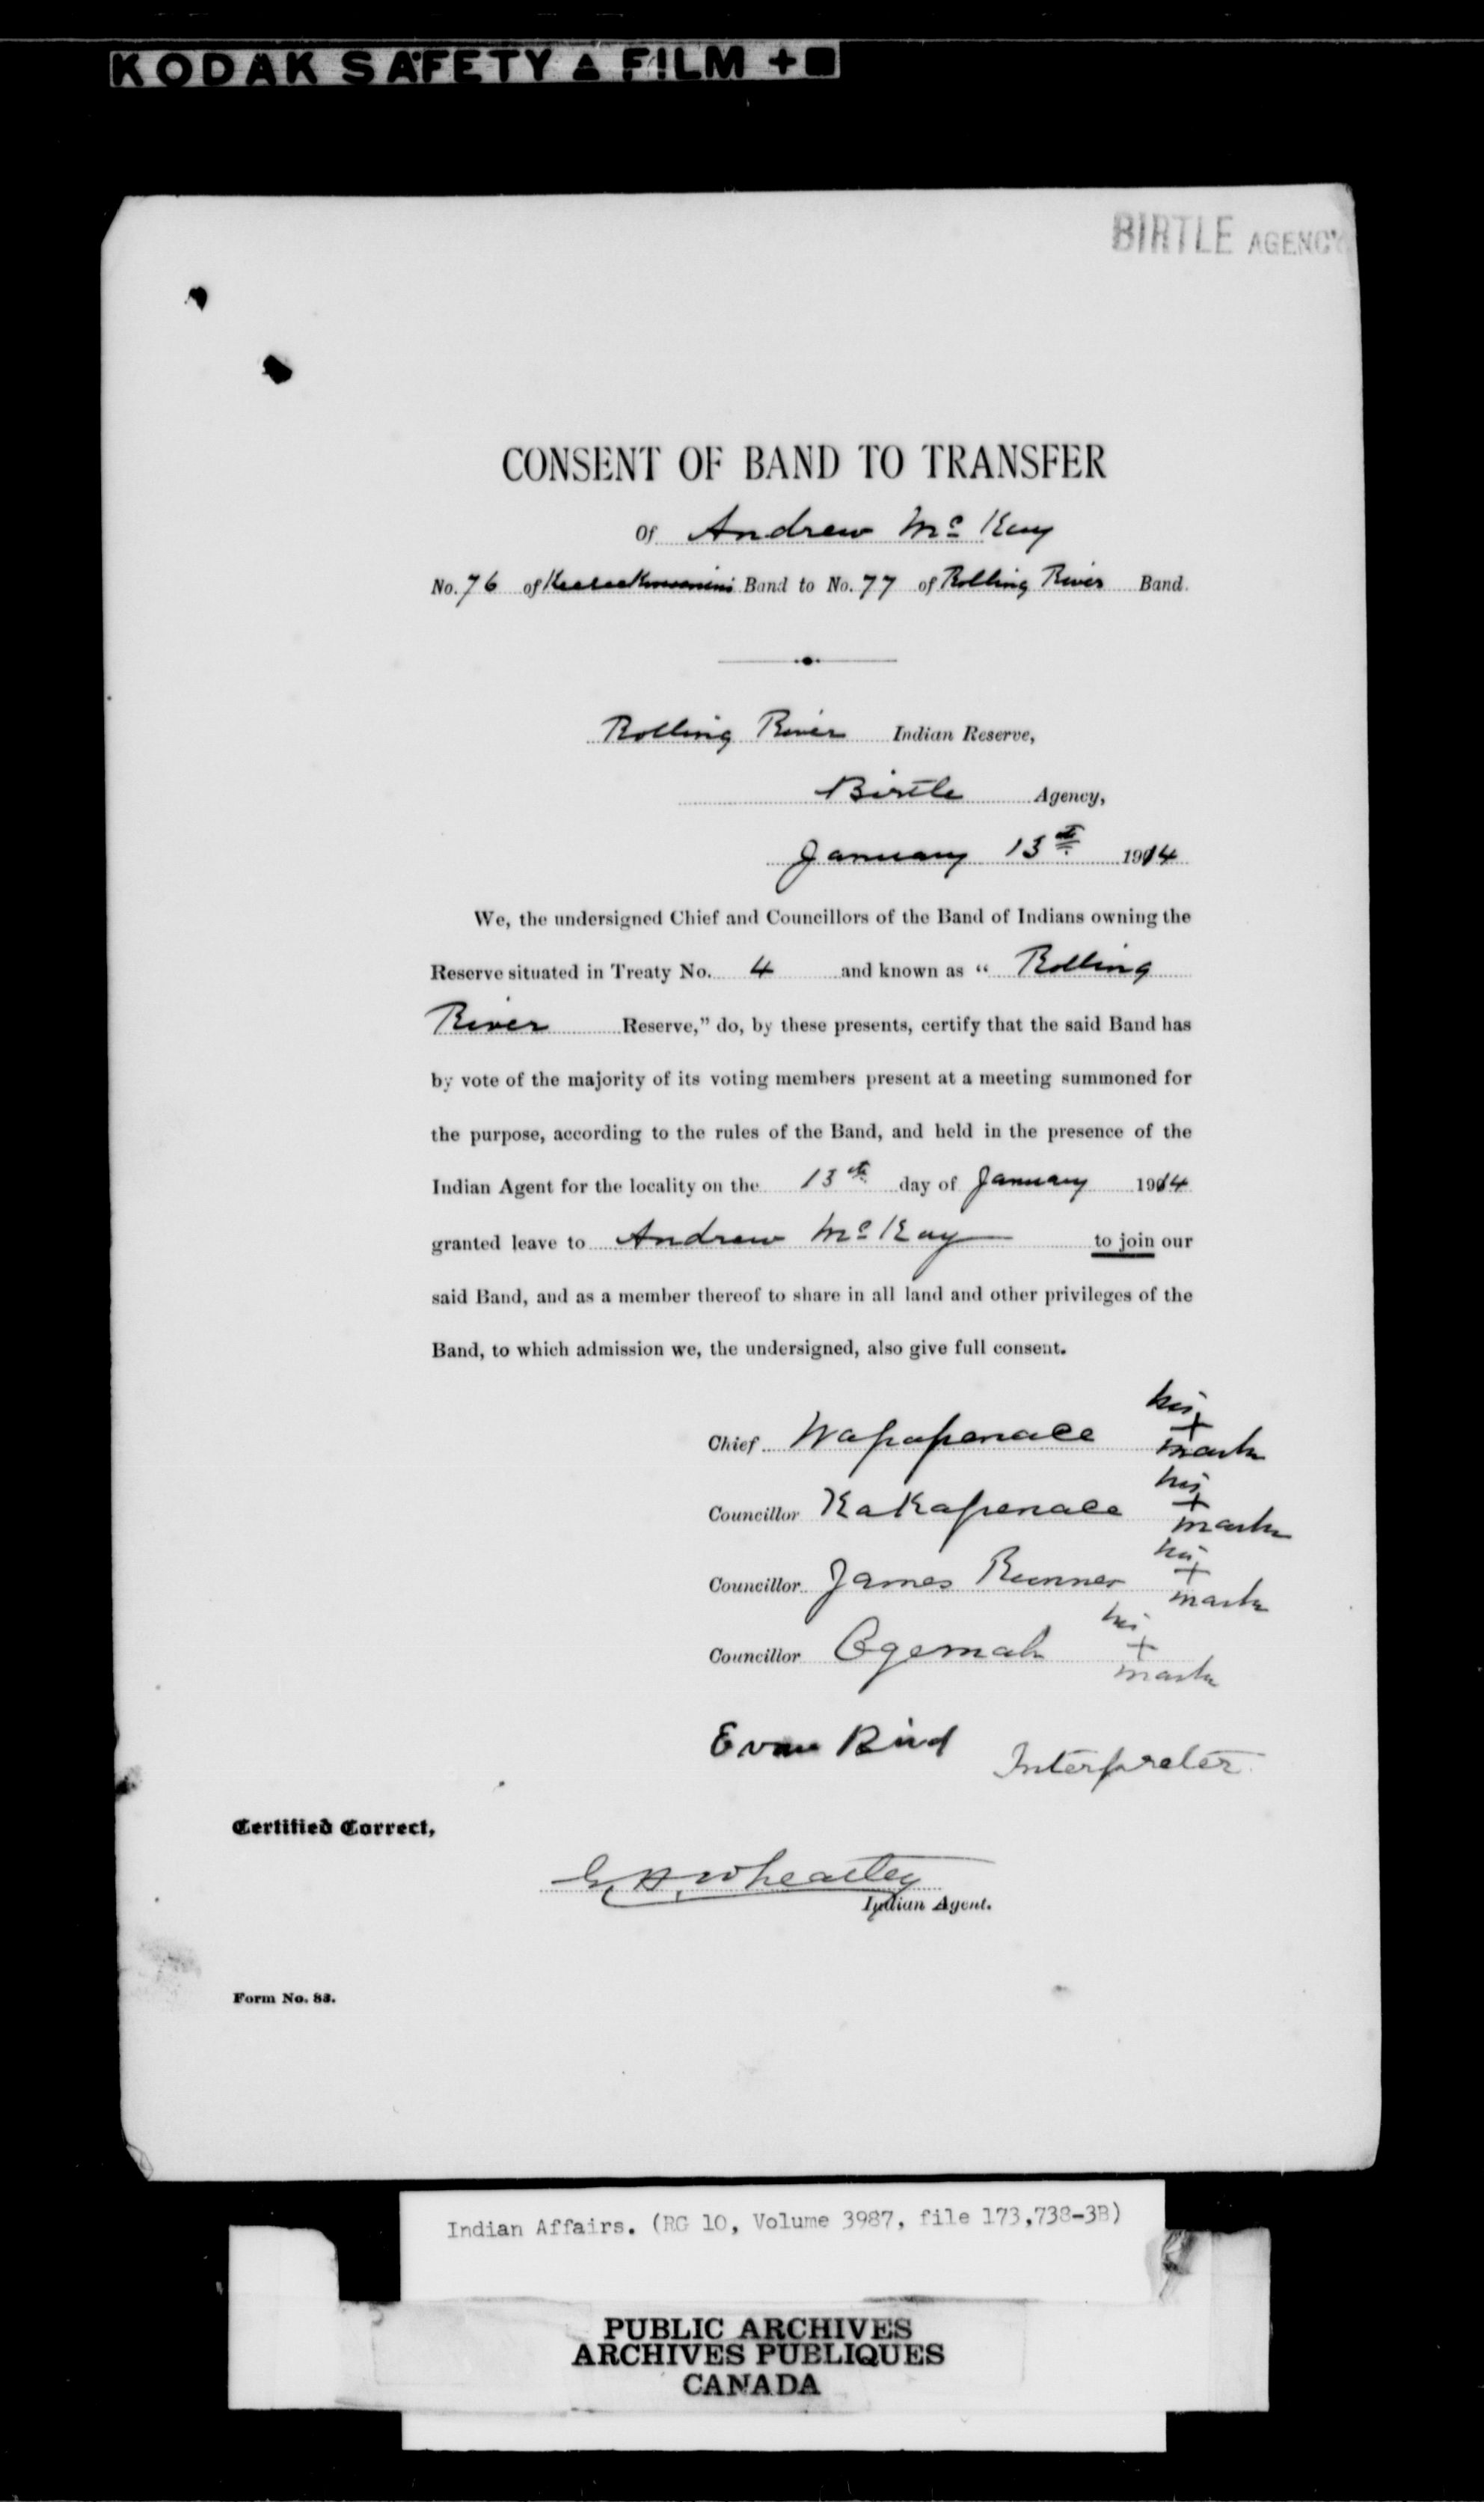 KODAK SAFETY FILM
BIRTLE AGENCY
CONSENT OF BAND TO TRANSFER
Of Andrew Mc Kay
No. 76 of Keeseekowenins Band to No. 77 of Rolling River Band.
Rolling River Indian Reserve,
Birtle Agency,
January 13th 1914
We, the undersigned Chief and Councillors of the Band of Indians owning the
Reserve situated in Treaty No. 4 and known as “ Rolling
River Reserve,” do, by these presents, certify that the said Band has
by vote of the majority of its voting members present at a meeting summoned for
the purpose, according to the rules of the Band, and held in the presence of the
Indian Agent for the locality on the 13th day of January 1914
granted leave to Andrew Mc Kay to join our
said Band, and as a member thereof to share in all land and other privileges of the
Band, to which admission we, the undersigned, also give full consent.
Chief Wapapenace his + mark
Councillor KaKapenace his + mark
Councillor James Runner his + mark
Councillor Ogemah his + mark
Evan Bird Interpreter
Certified Correct,
G. H. Wheatley
Indian Agent.
Form No. 83.
Indian Affairs. (RG 10, Volume 3987, file 173,738-3B)
PUBLIC ARCHIVES
ARCHIVES PUBLIQUES
CANADA